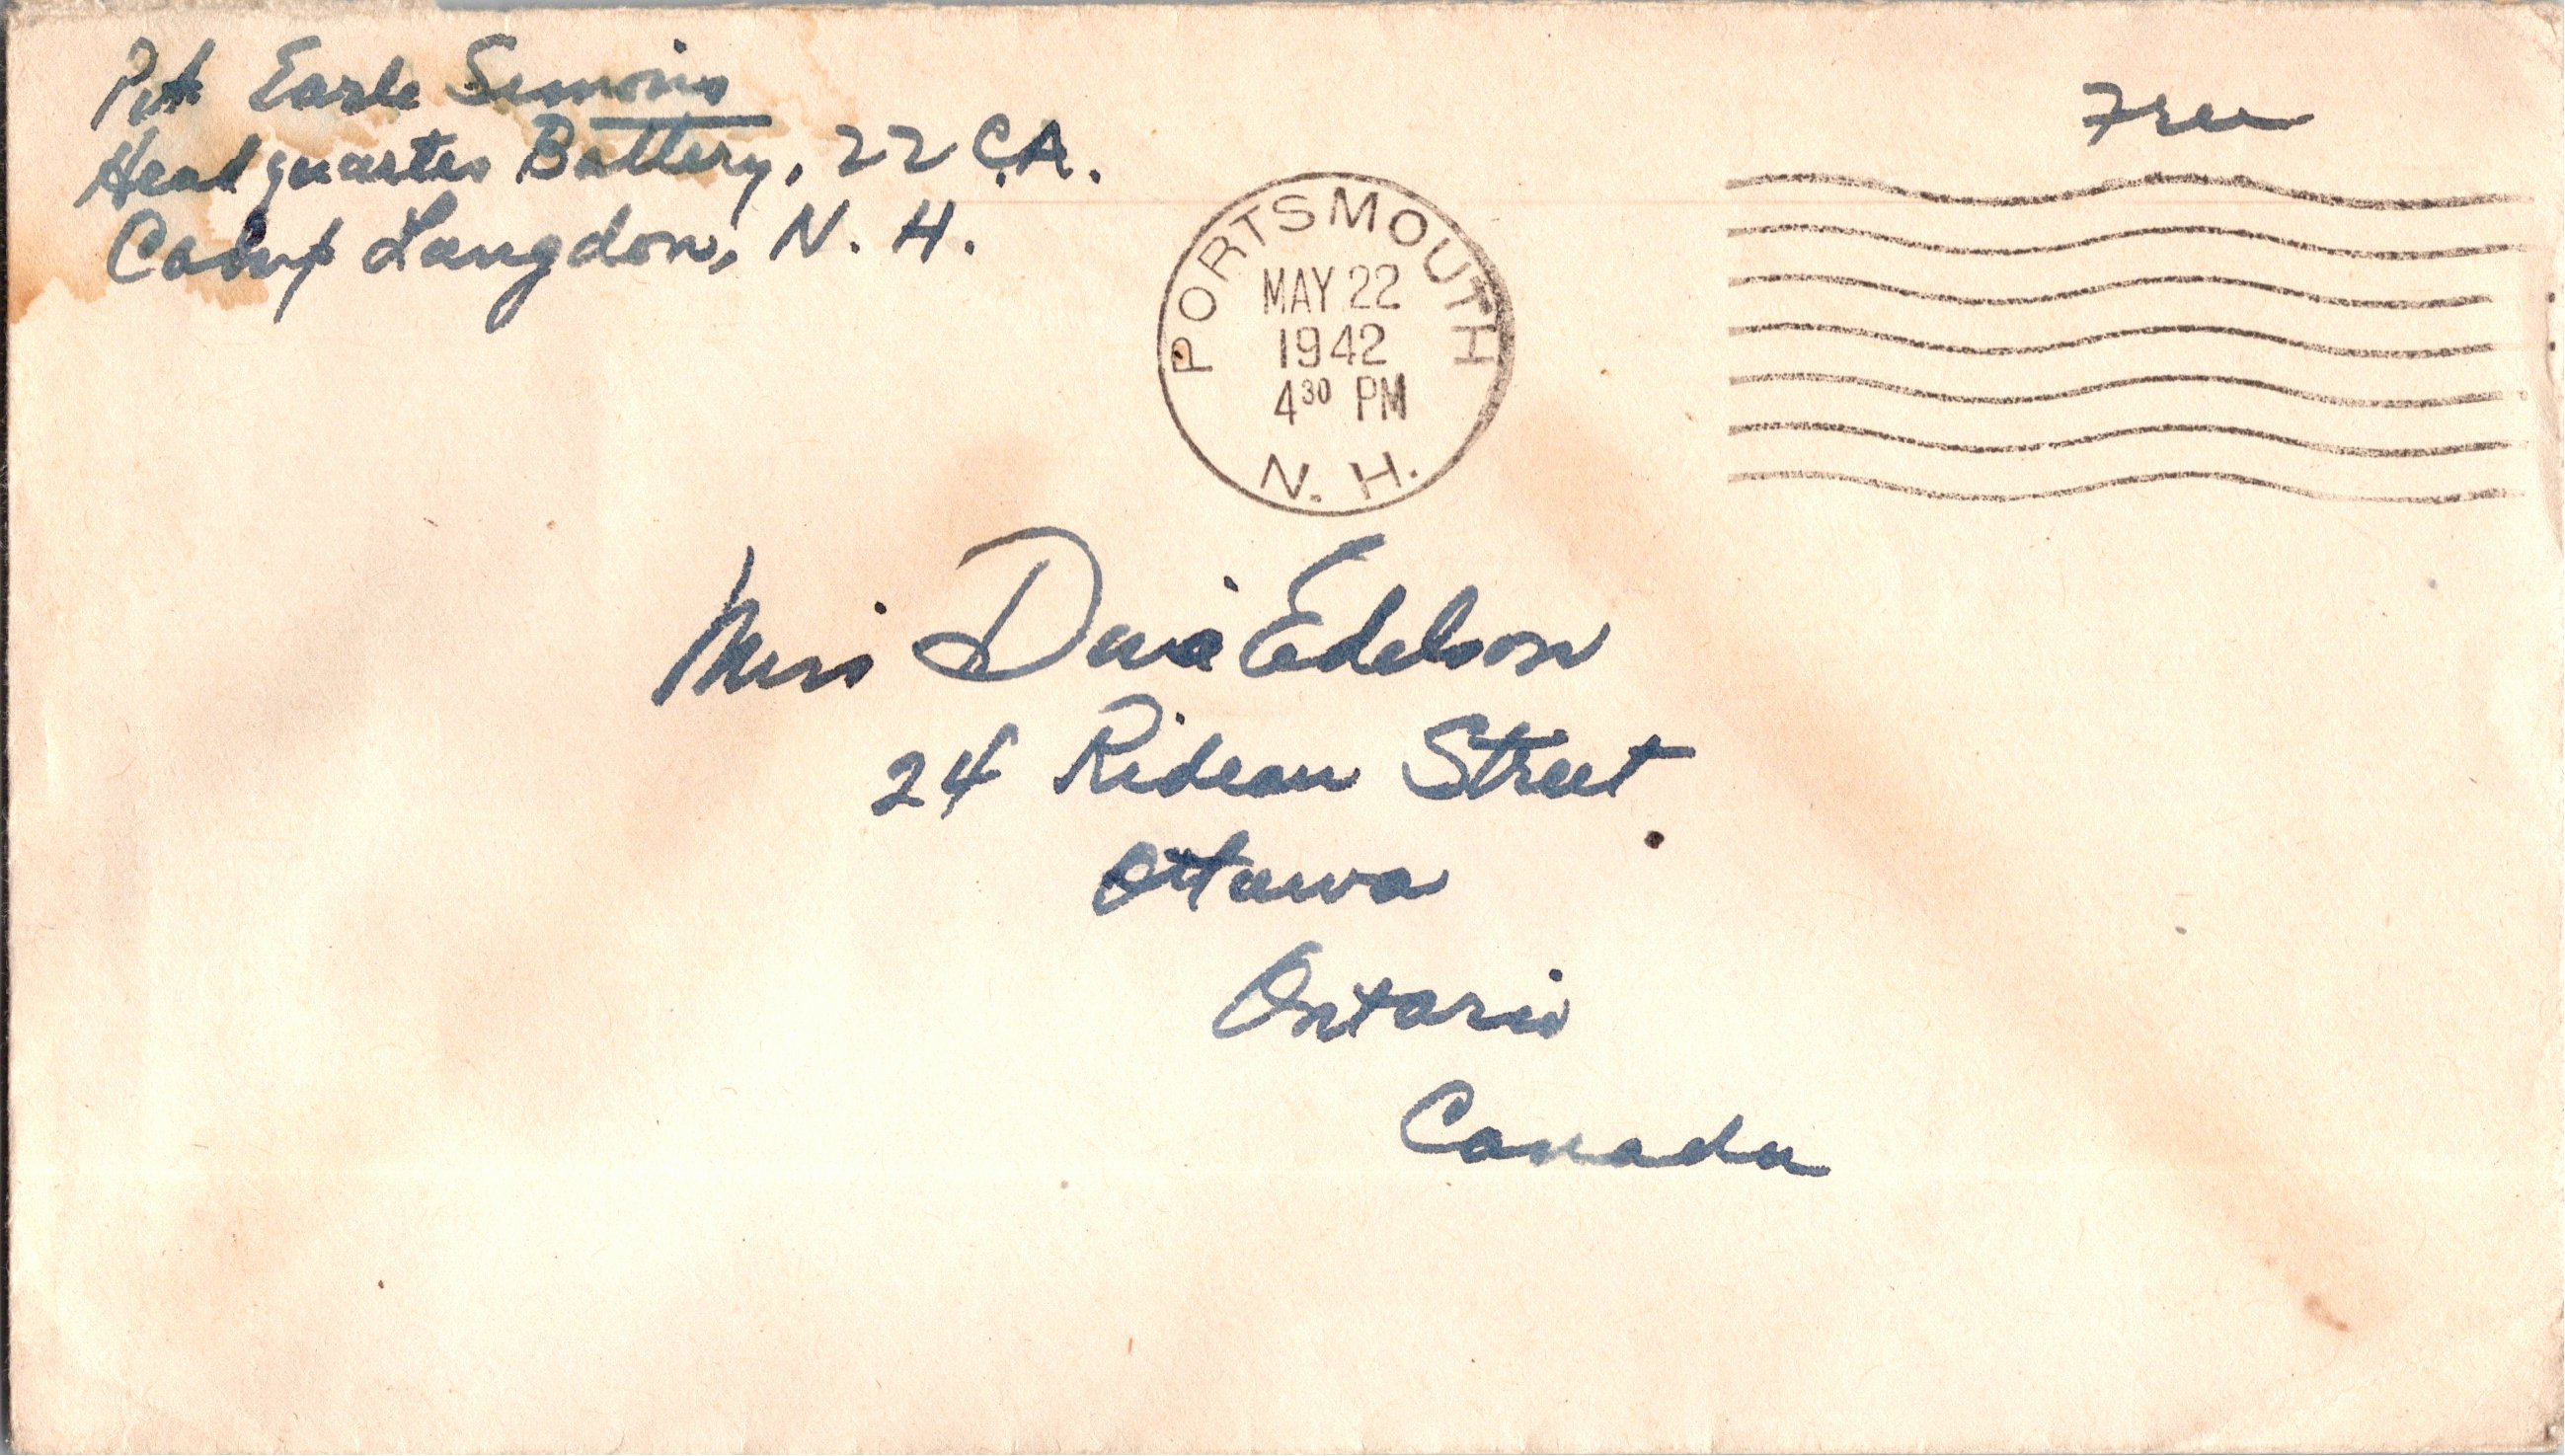 Pvt Earle Simonis
Headquarters Battery, 22 C.A.
Camp Langdon, N. H.
Free
PORTSMOUTH
MAY 22
1942
4³⁰ PM
N. H.
Miss Edelson
24 Rideau Street
Ottawa
Ontario
Canada